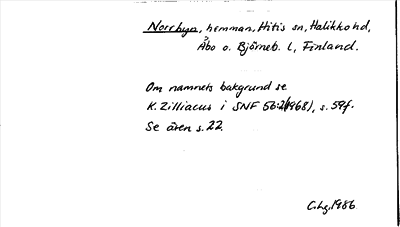 Norrbyn, hemman, Hitis sn, Halikko hd,
Åbo o. Björneb. l, Finland.
Om namnets bakgrund se
K. Zilliacus i SNF 56:2(1968), s. 59f.
Se även s. 22.
C.Lg. 1986